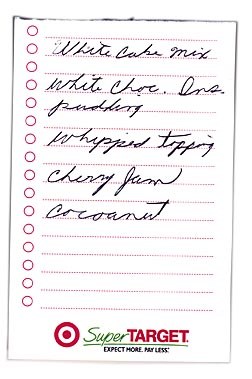 White Cake mix
white choc. Ins.
pudding
whipped topping
cherry Jam
cocoanut
SuperTARGET
EXPECT MORE. PAY LESS.